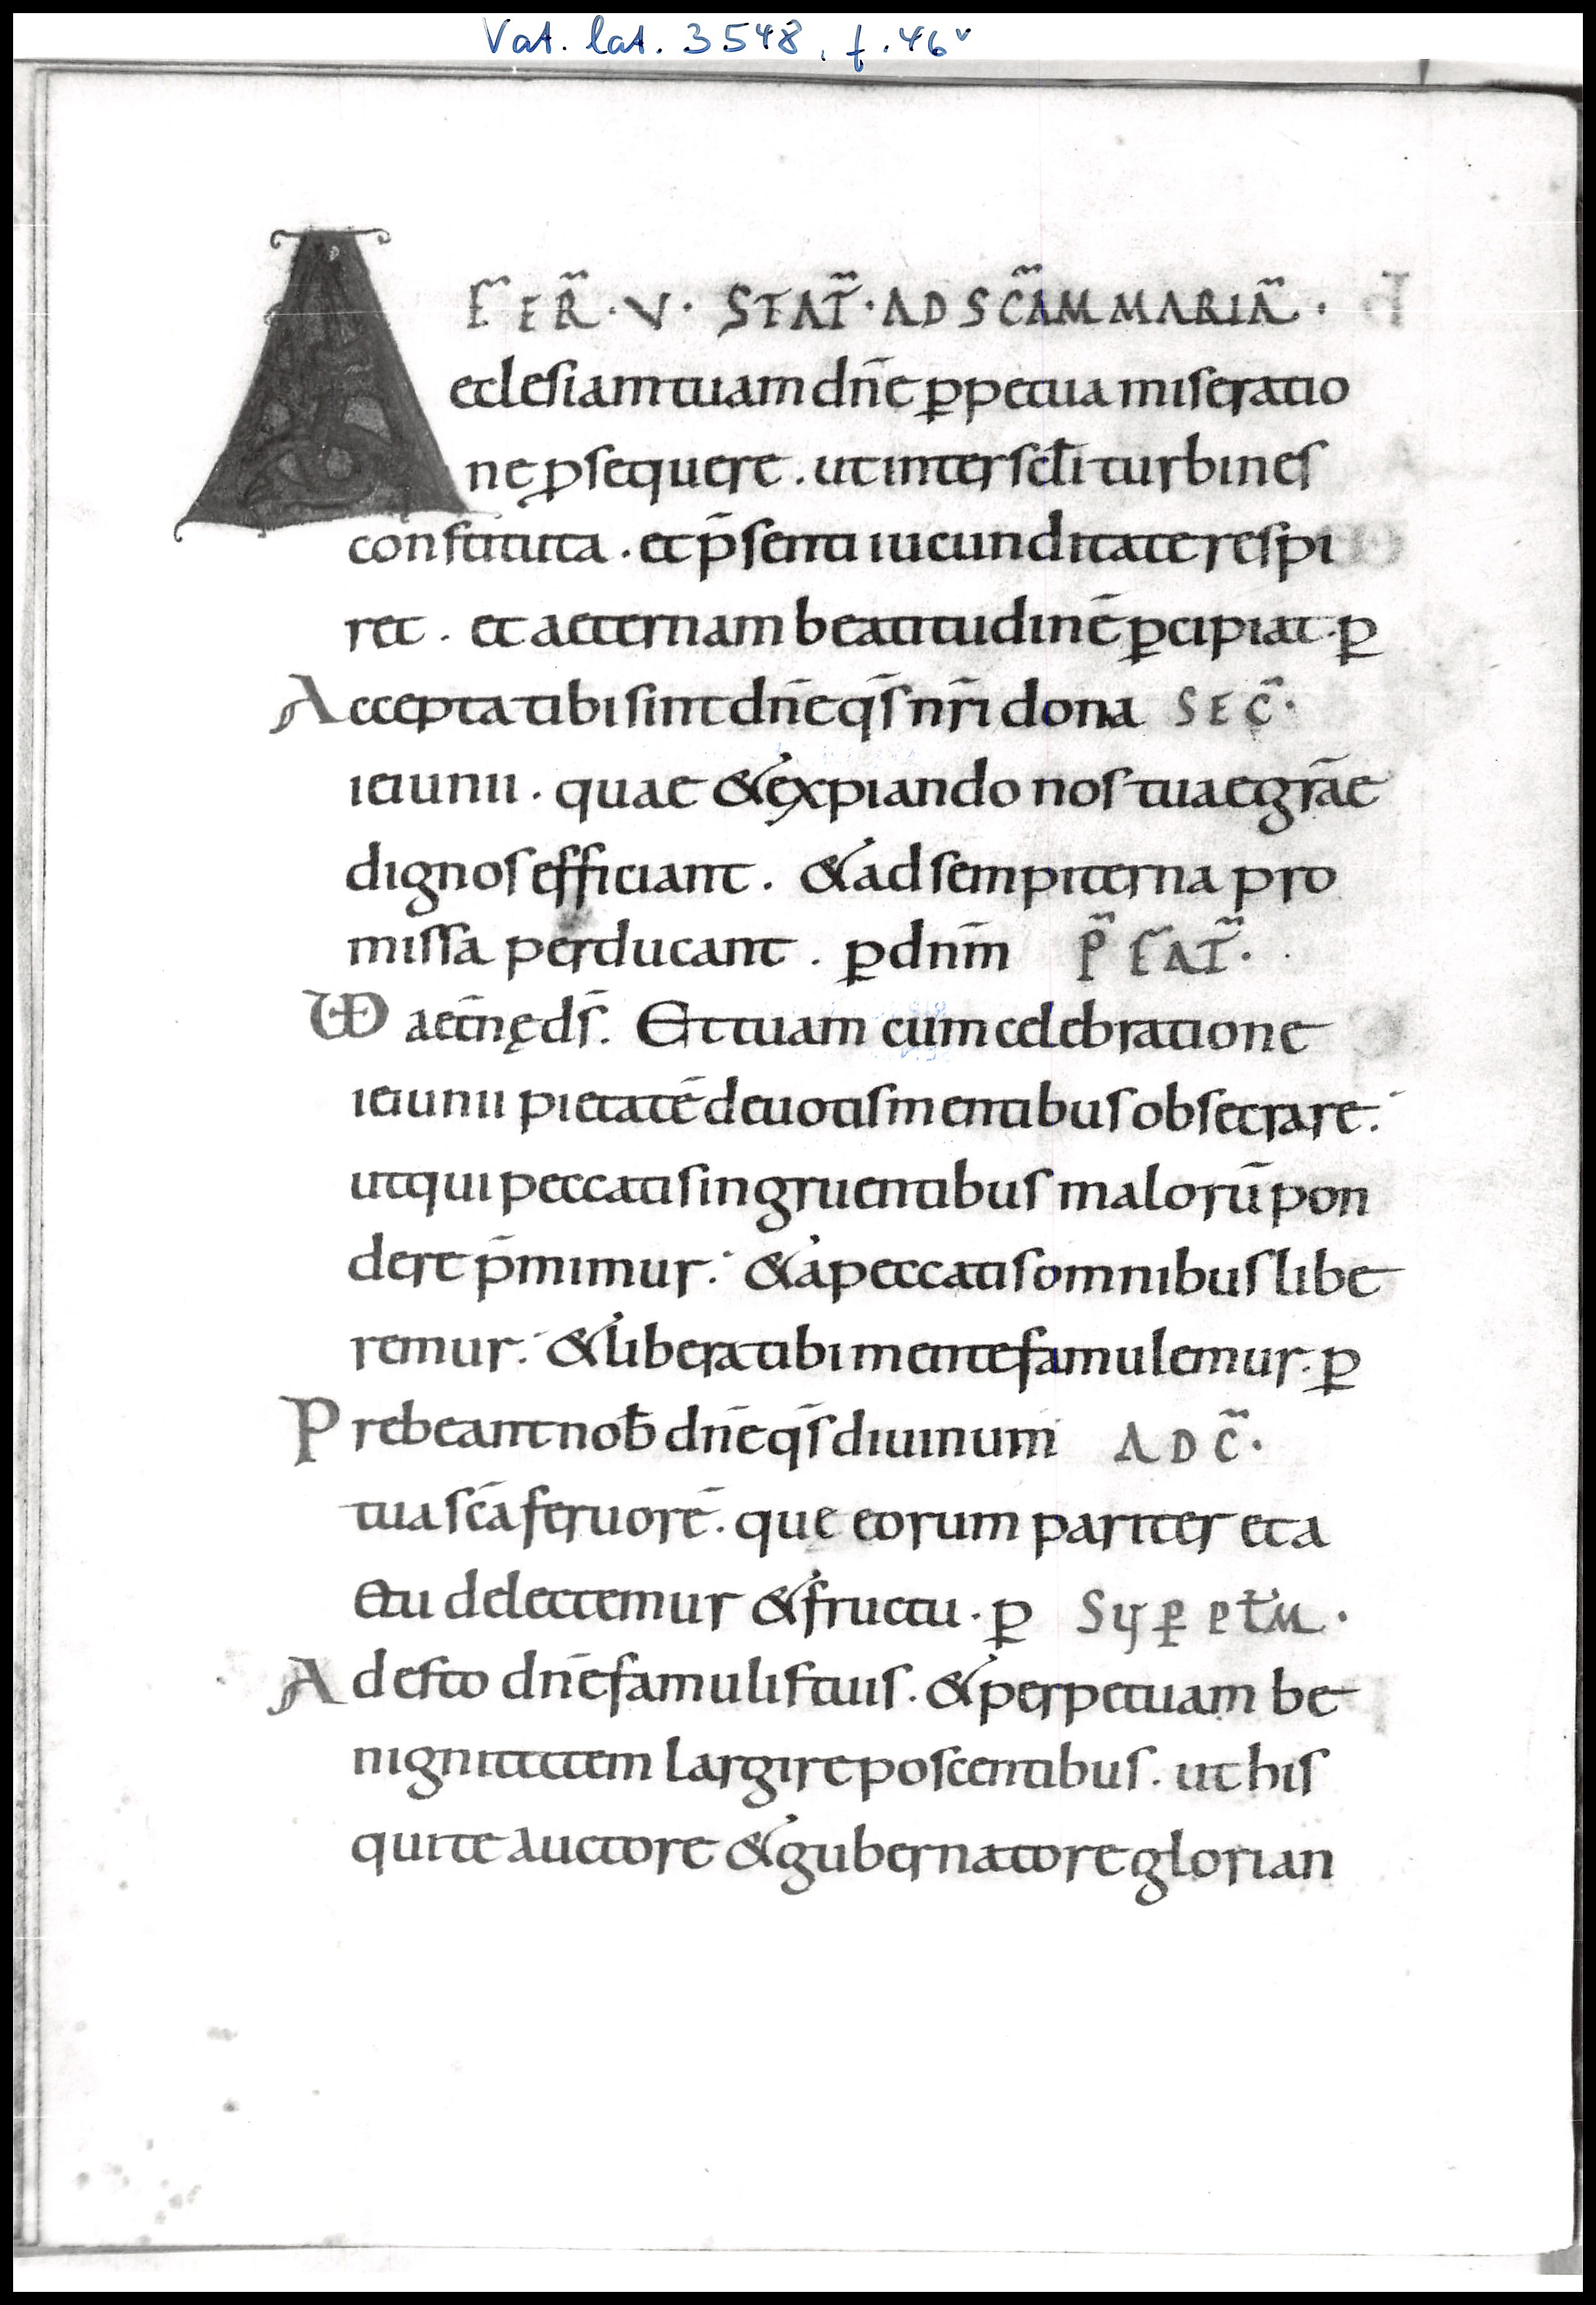 Vat. lat. 3548, f. 46v
FER̃ · V · STAT̃ · AD SCÃM MARIÃ ·
A ecclesiam tuam dn̄e ꝑpetua miseratio
ne ꝓsequere . ut inter sc̄li turbines
constituta . et p̄senti iucunditate respi
ret . et aeternam beatitudinē ꝑcipiat · ꝑ
Accepta tibi sint dn̄e qs̄ nr̄i dona SEC̃ ·
ieiunii . quae & expiando nos tuae gr̄ae
dignos efficiant . & ad sempiterna pro
missa perducant . ꝑ dnm̄ P̃FAT̃ ·
VD aet̄nę ds̄ . Et tuam cum celebratione
ieiunii pietatē deuotis mentibus obsecrare .
ut qui peccatis ingruentibus malorū pon
dere p̄mimur . & a peccatis omnibus libe
remur . & libera tibi mente famulemur . ꝑ
Prebeant nob̄ dn̄e qs̄ diuinum AD C̃ ·
tua sc̄a feruorē . que eorum pariter et a
ctu delectemur & fructu . ꝑ SUꝑ PŁM ·
Adesto dn̄e famulis tuis . & perpetuam be
nignitatem largire poscentibus . ut his
qui te auctore & gubernatore glorian